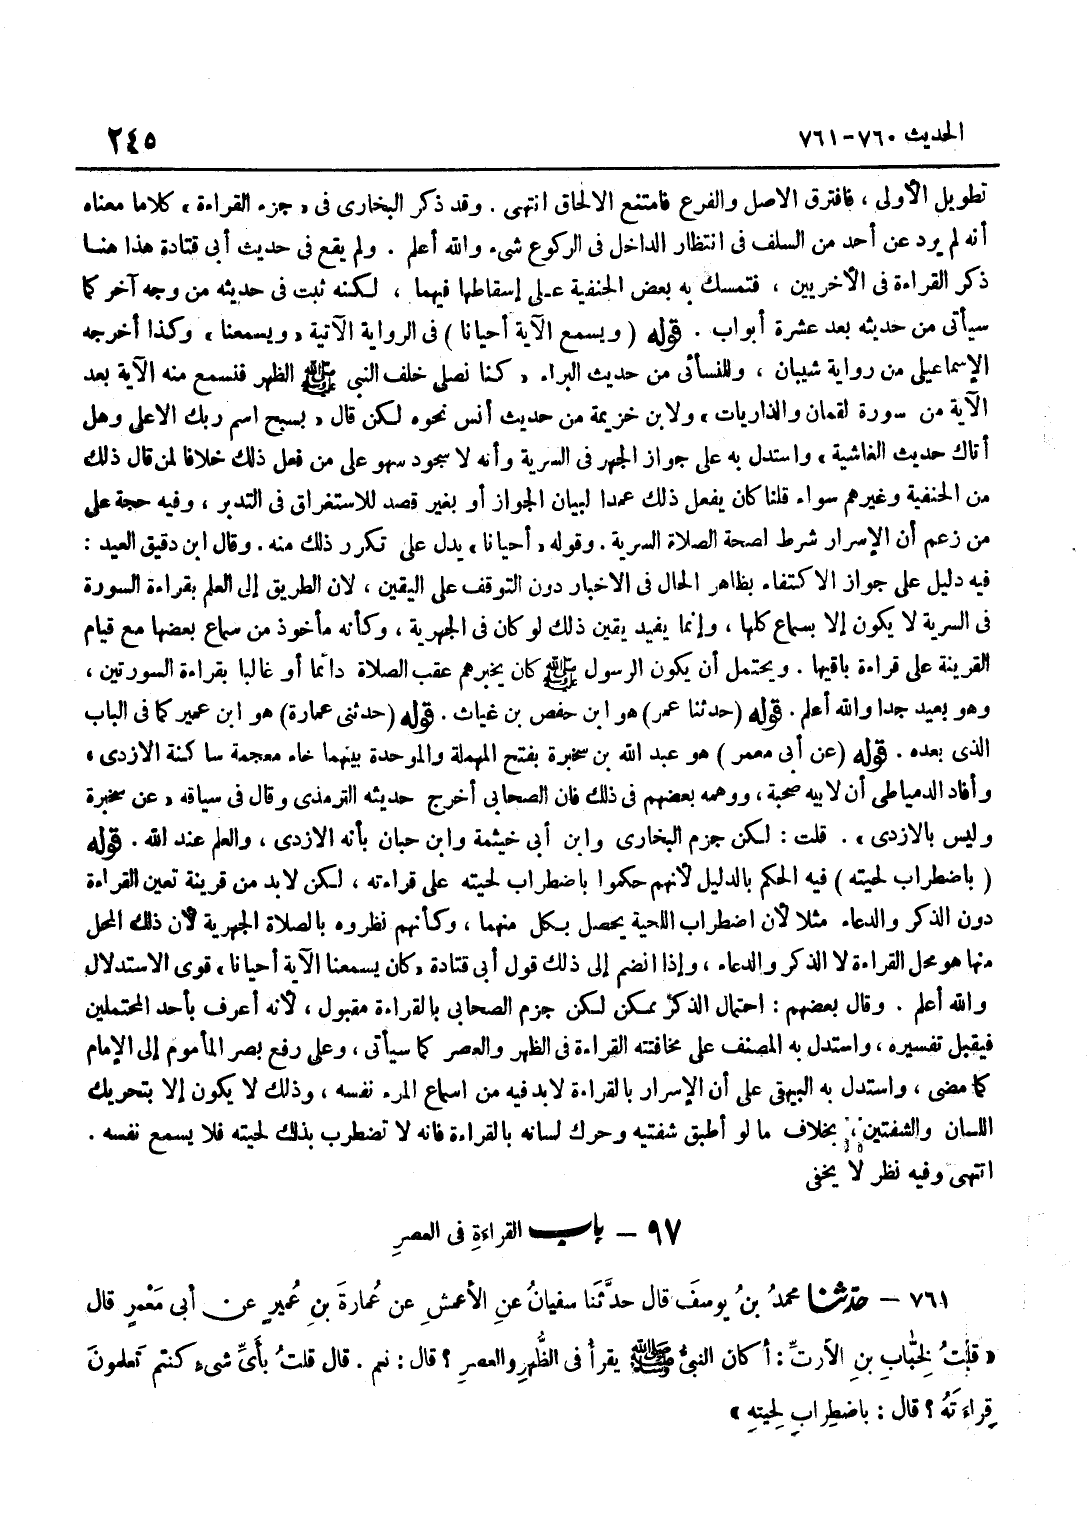 الحديث ٧٦٠-٧٦١ ٢٤٥
تطويل الأولى ، فافترق الاصل والفرع فامتنع الالحاق انتهى . وقد ذكر البخارى فى « جزء القراءة » كلاما معناه
أنه لم يرد عن أحد من السلف فى انتظار الداخل فى الركوع شىء والله أعلم . ولم يقع فى حديث أبى قتادة هذا هنـا
ذكر القراءة فى الأخريين ، فتمسك به بعض الحنفية على إسقاطها فيهما ، لكنه ثبت فى حديثه من وجه آخر كما
سيأتى من حديثه بعد عشرة أبواب . قوله ( ويسمع الآية أحيانا ) فى الرواية الآتية « ويسمعنا » وكذا أخرجه
الإسماعيلى من رواية شيبان ، وللنسائى من حديث البراء « كنا نصلى خلف النبى ﷺ الظهر فنسمع منه الآية بعد
الآية من سورة لقمان والذاريات » ولابن خزيمة من حديث أنس نحوه لكن قال « بسبح اسم ربك الاعلى وهل
أتاك حديث الغاشية » واستدل به على جواز الجهر فى السرية وأنه لا سجود سهو على من فعل ذلك خلافا لمن قال ذلك
من الحنفية وغيرهم سواء قلنا كان يفعل ذلك عمدا لبيان الجواز أو بغير قصد للاستغراق فى التدبر ، وفيه حجة على
من زعم أن الإسرار شرط لصحة الصلاة السرية . وقوله « أحيانا » يدل على تكرر ذلك منه . وقال ابن دقيق العيد :
فيه دليل على جواز الاكتفاء بظاهر الحال فى الاخبار دون التوقف على اليقين ، لان الطريق إلى العلم بقراءة السورة
فى السرية لا يكون إلا بسماع كلها ، وإنما يفيد يقين ذلك لو كان فى الجهرية ، وكأنه مأخوذ من سماع بعضها مع قيام
القرينة على قراءة باقيها . ويحتمل أن يكون الرسول ﷺ كان يخبرهم عقب الصلاة دائما أو غالبا بقراءة السورتين ،
وهو بعيد جدا والله أعلم . قوله (حدثنا عمر) هو ابن حفص بن غياث . قوله (حدثنى عمارة) هو ابن عمير كما فى الباب
الذى بعده . قوله (عن أبى معمر ) هو عبد الله بن سخبرة بفتح المهملة والموحدة بينهما خاء معجمة ساكنة الازدى ،
وأفاد الدمياطى أن لابيه صحبة ، ووهمه بعضهم فى ذلك فان الصحابى أخرج حديثه الترمذى وقال فى سياقه « عن سخبرة
وليس بالازدى » . قلت : لكن جزم البخارى وابن أبى خيثمة وابن حبان بأنه الازدى ، والعلم عند الله . قوله
( باضطراب لحيته ) فيه الحكم بالدليل لأنهم حكموا باضطراب لحيته على قراءته ، لكن لابد من قرينة تعين القراءة
دون الذكر والدعاء مثلا لأن اضطراب اللحية يحصل بكل منهما ، وكأنهم نظروه بالصلاة الجهرية لأن ذلك المحل
منها هو محل القراءة لا الذكر والدعاء ، وإذا انضم إلى ذلك قول أبى قتادة « كان يسمعنا الآية أحيانا » قوى الاستدلال
والله أعلم . وقال بعضهم : احتمال الذكر ممكن لكن جزم الصحابى بالقراءة مقبول ، لأنه أعرف بأحد المحتملين
فيقبل تفسيره ، واستدل به المصنف على مخافتته القراءة فى الظهر والعصر كما سيأتى ، وعلى رفع بصر المأموم إلى الإمام
كما مضى ، واستدل به البيهقى على أن الإسرار بالقراءة لابد فيه من اسماع المرء نفسه ، وذلك لا يكون إلا بتحريك
اللسان والشفتين ، بخلاف ما لو أطبق شفتيه وحرك لسانه بالقراءة فانه لا تضطرب بذلك لحيته فلا يسمع نفسه .
انتهى وفيه نظر لا يخفى
٩٧ - باب القراءةِ فى العصرِ
٧٦١ - حدّثنا محمدُ بنُ يوسفَ قال حدَّثَنا سفيانُ عنِ الأعمشِ عن عُمارةَ بنِ عُميرٍ عن أبى مَعْمرٍ قال
« قلتُ لخبّابِ بنِ الأرتِّ : أكان النبىُّ ﷺ يقرأُ فى الظُّهرِ والعصرِ ؟ قال : نعم . قال قلتُ بأَىِّ شىءٍ كنتم تعلمونَ
قِراءتَهُ ؟ قال : باضطِرابِ لحيتهِ »